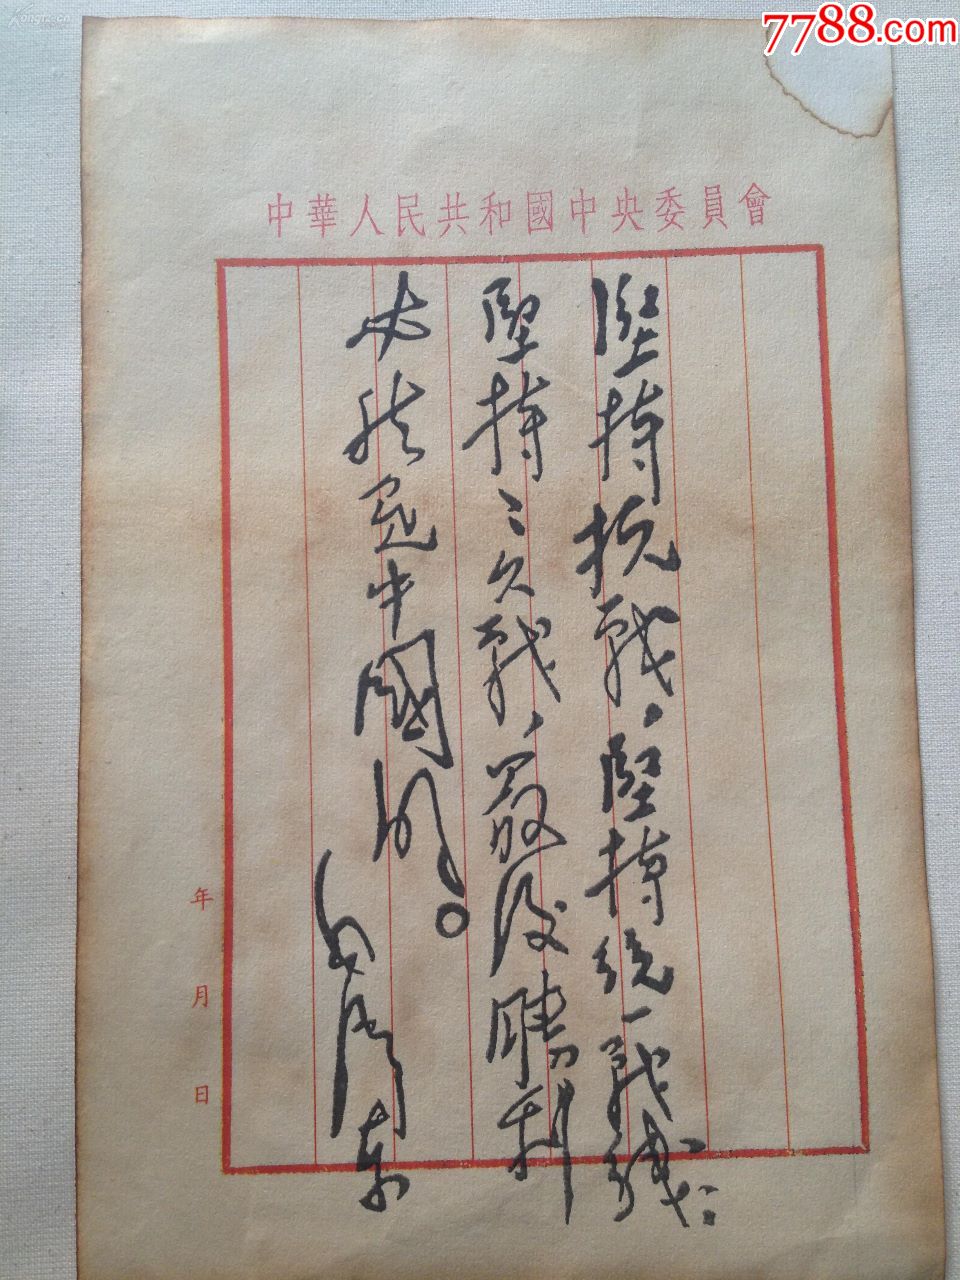 Kongfz.cn
7788.com
中華人民共和國中央委員會
堅持抗戰、堅持統一戰綫、
堅持持久戰、最後勝利
必然是中國的。
毛澤東
年 月 日